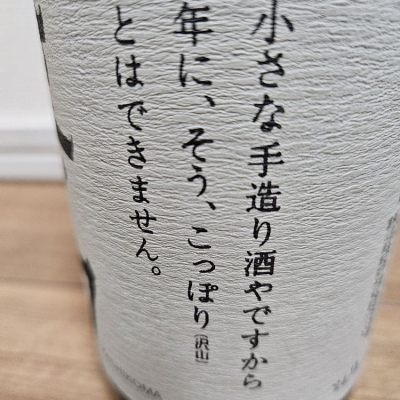 小さな手造り酒やですから
年に、そう、こっぽり［沢山］
とはできません。